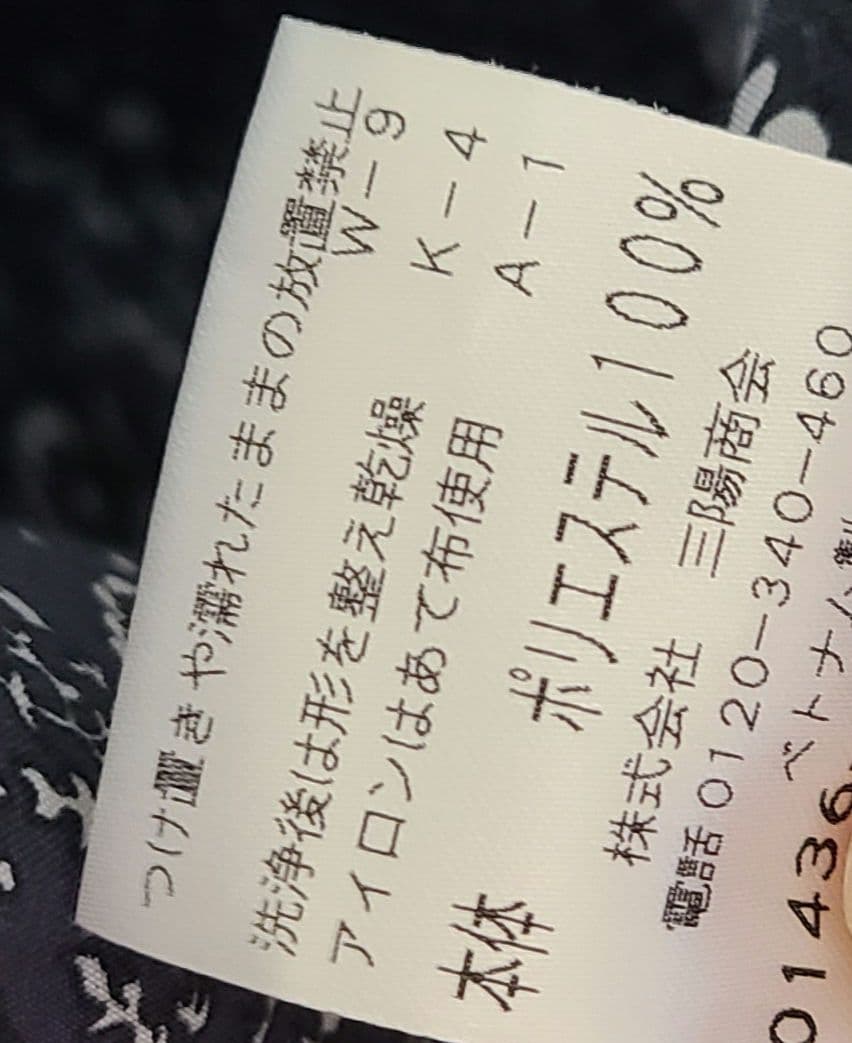 つけ置きや濡れたままの放置禁止
W－9
洗浄後は形を整え乾燥 K－4
アイロンはあて布使用 A－1
本体 ポリエステル100%
株式会社 三陽商会
電話 0120－340－460
ベトナム製
01436